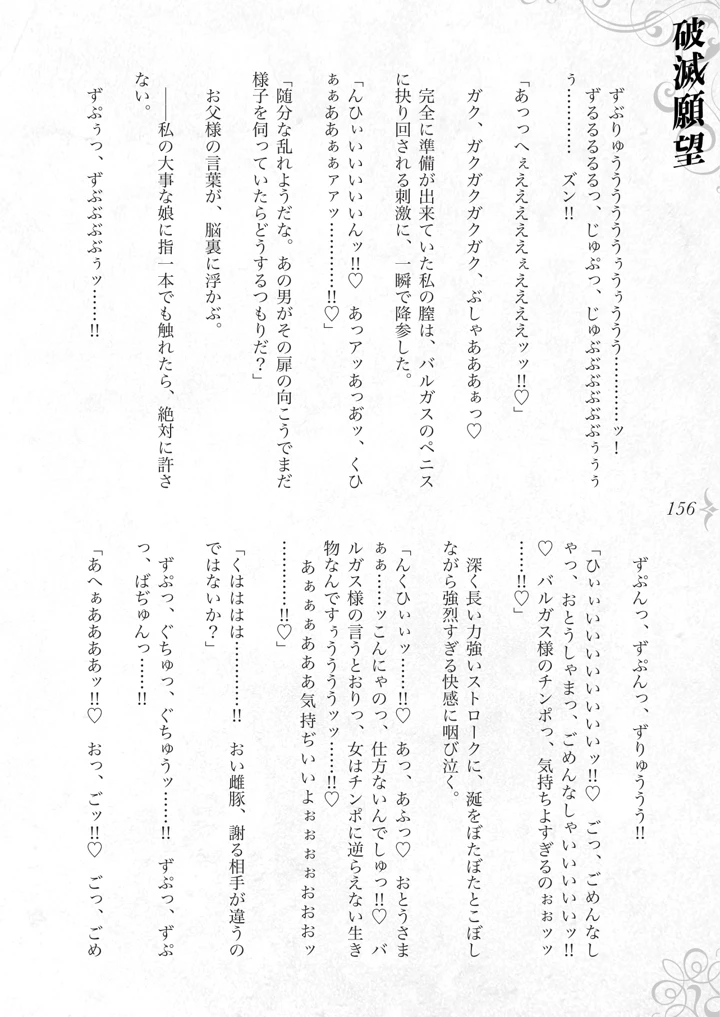 破滅願望
ずぶりゅううううううぅうぅううう…………ッ！
ずるるるるるっ、じゅぷっ、じゅぶぶぶぶぶぶぅぅぅ
ぅ…………　ズン!!
「あっっへぇえええええぇええええッッ!!♡」
ガク、ガクガクガクガク、ぶしゃあああぁっ♡
完全に準備が出来ていた私の膣は、バルガスのペニス
に抉り回される刺激に、一瞬で降参した。
「んひぃいいいいいいんッ!!♡　あっアッあっあ゛ッ、くひ
ぁぁああぁぁァアッ…………!!♡」
「随分な乱れようだな。あの男がその扉の向こうでまだ
様子を伺っていたらどうするつもりだ？」
お父様の言葉が、脳裏に浮かぶ。
――私の大事な娘に指一本でも触れたら、絶対に許さ
ない。
ずぷぅっ、ずぶぶぶぶぅッ……!!
156
ずぷんっ、ずぷんっ、ずりゅううう!!
「ひぃぃいいいいいいいいいッ!!♡　ごっ、ごめんなし
ゃっ、おとうしゃまっ、ごめんなしゃいいいいいッ!!
♡　バルガス様のチンポっ、気持ちよすぎるのぉぉッッ
……!!♡」
深く長い力強いストロークに、涎をぼたぼたとこぼし
ながら強烈すぎる快感に咽び泣く。
「んくひぃぃッ……!!♡　あっ、あふっ♡　おとうさま
ぁぁ……ッこんにゃのっ、仕方ないんでしゅっ!!♡　バ
ルガス様の言うとおりっ、女はチンポに逆らえない生き
物なんですぅうううッッ……!!♡
あぁぁぁあああ気持ぢいいよぉぉぉぉおおおッ
…………!!♡」
「くはははは…………!!　おい雌豚、謝る相手が違うの
ではないか？」
ずぷっ、ぐちゅっ、ぐちゅうッ……!!　ずぷっ、ずぷ
っ、ばぢゅんっ……!!
「あへぁああああッ!!♡　おっ、ごッ!!♡　ごっ、ごめ